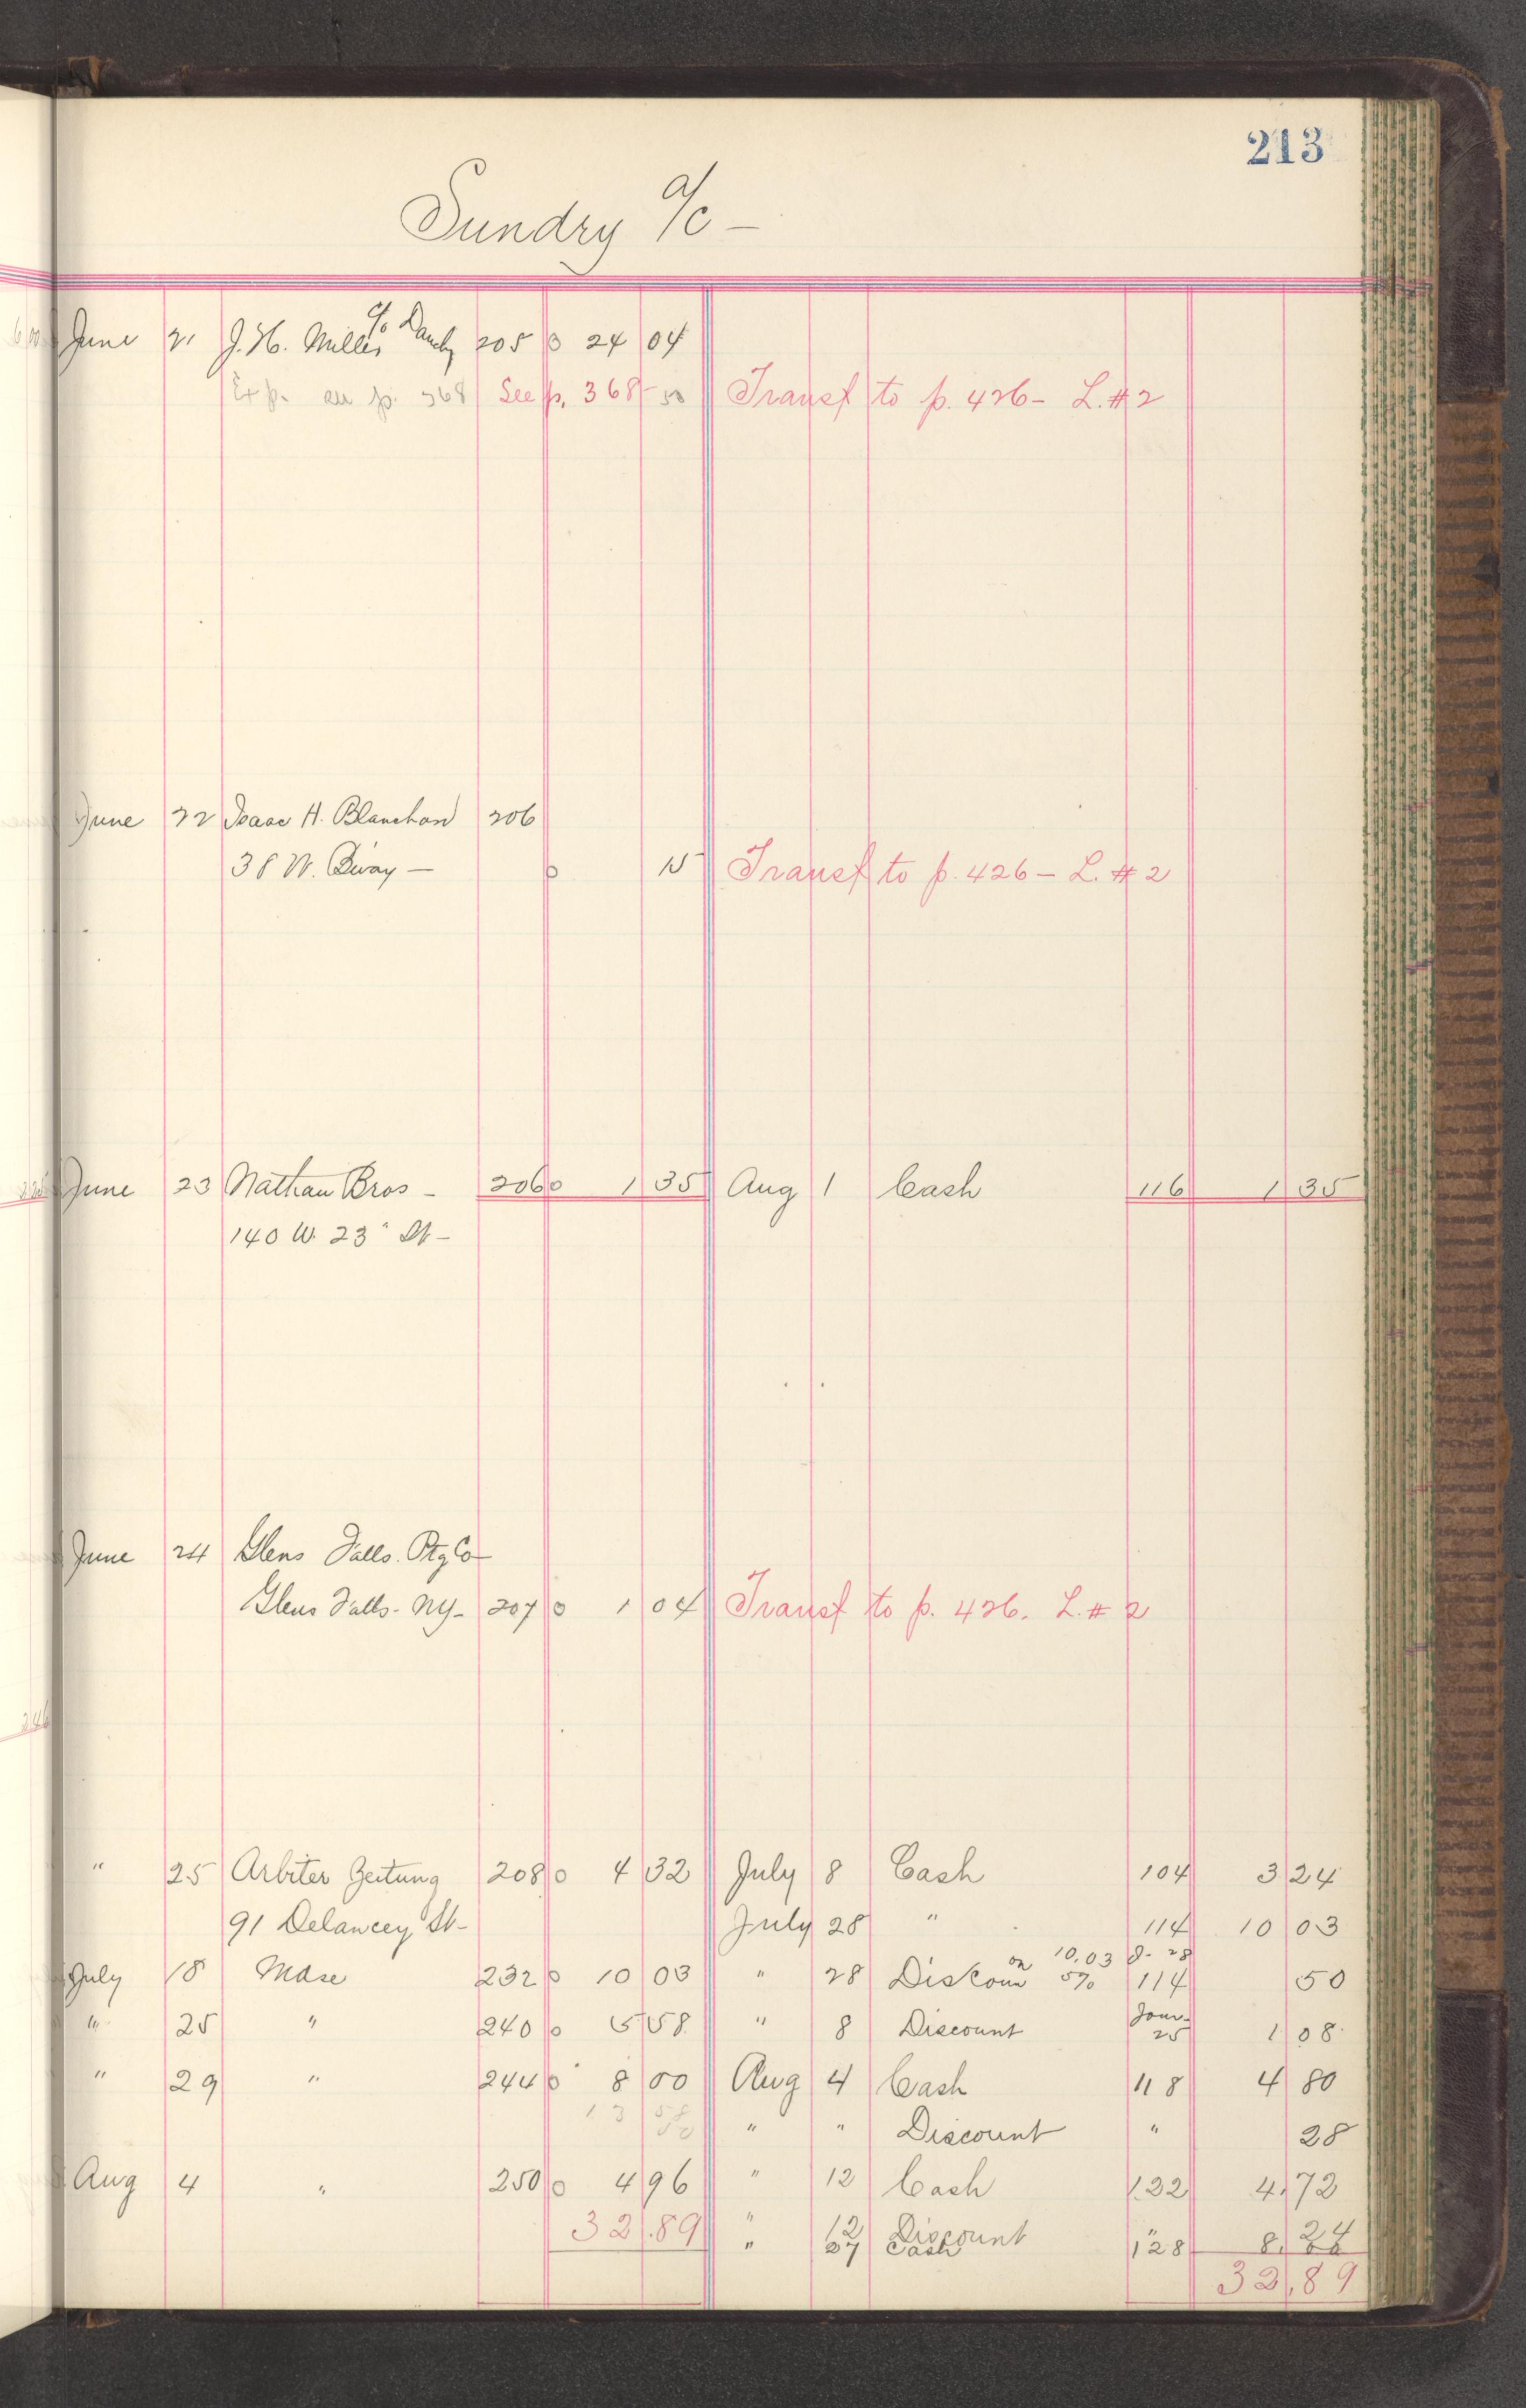 213
Sundry a/c —
June 21 J. H. Miller c/o Dandy 205 0 24 04
Exp. on p. 368 See p. 368 - 50 Transf to p. 426 - L. # 2
June 22 Isaac H. Blanchard 206
38 W. B'way — 0 15 Transf to p. 426 - L. # 2
June 23 Nathan Bros - 206 0 1 35 Aug 1 Cash 116 1 35
140 W. 23" St -
June 24 Glens Falls. Ptg Co -
Glens Falls - NY - 207 0 1 04 Transf to p. 426. L. # 2
" 25 Arbiter Zeitung 208 0 4 32 July 8 Cash 104 3 24
91 Delancey St - July 28 " 114 10 03
on 10.03 8 - 28
July 18 Mdse 232 0 10 03 " 28 Discoun 5% 114 50
" 25 " 240 0 5 58 " 8 Discount Jour- 25 1 08
" 29 " 244 0 8 00 Aug 4 Cash 118 4 80
13 58 " " Discount " 28
Aug 4 " 250 0 4 96 " 12 Cash 122 4 72
32.89 " 12 Discount " 24
" 27 Cash 128 8.
32.89